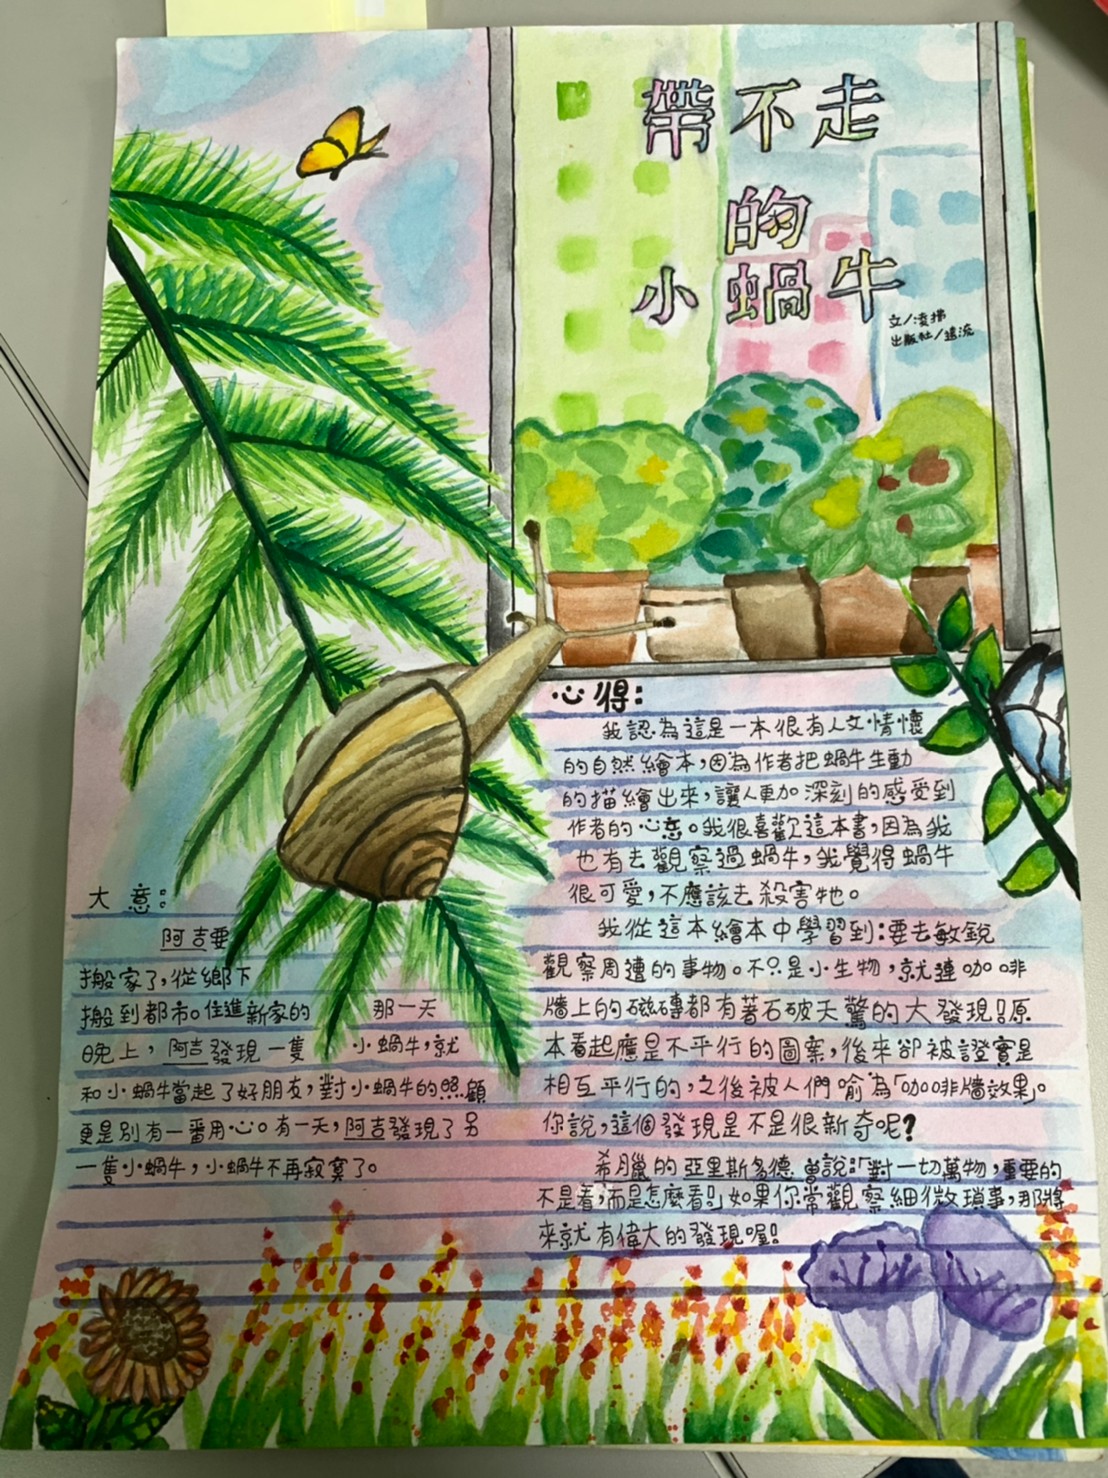 帶不走
的
小蝸牛
文/凌拂
出版社/遠流
大意:
阿吉要
搬家了,從鄉下
搬到都市。住進新家的 那一天
晚上,阿吉發現一隻 小蝸牛,就
和小蝸牛當起了好朋友,對小蝸牛的照顧
更是別有一番用心。有一天,阿吉發現了另
一隻小蝸牛,小蝸牛不再寂寞了。
心得:
我認為這是一本很有人文情懷
的自然繪本,因為作者把蝸牛生動
的描繪出來,讓人更加深刻的感受到
作者的心意。我很喜歡這本書,因為我
也有去觀察過蝸牛,我覺得蝸牛
很可愛,不應該去殺害牠。
我從這本繪本中學習到:要去敏銳
觀察周遭的事物。不只是小生物,就連咖啡
牆上的磁磚都有著石破天驚的大發現!原
本看起應是不平行的圖案,後來卻被證實是
相互平行的,之後被人們喻為「咖啡牆效果」。
你說,這個發現是不是很新奇呢?
希臘的亞里斯多德曾說:「對一切萬物,重要的
不是看,而是怎麼看!」如果你常觀察細微瑣事,那將
來就有偉大的發現喔!